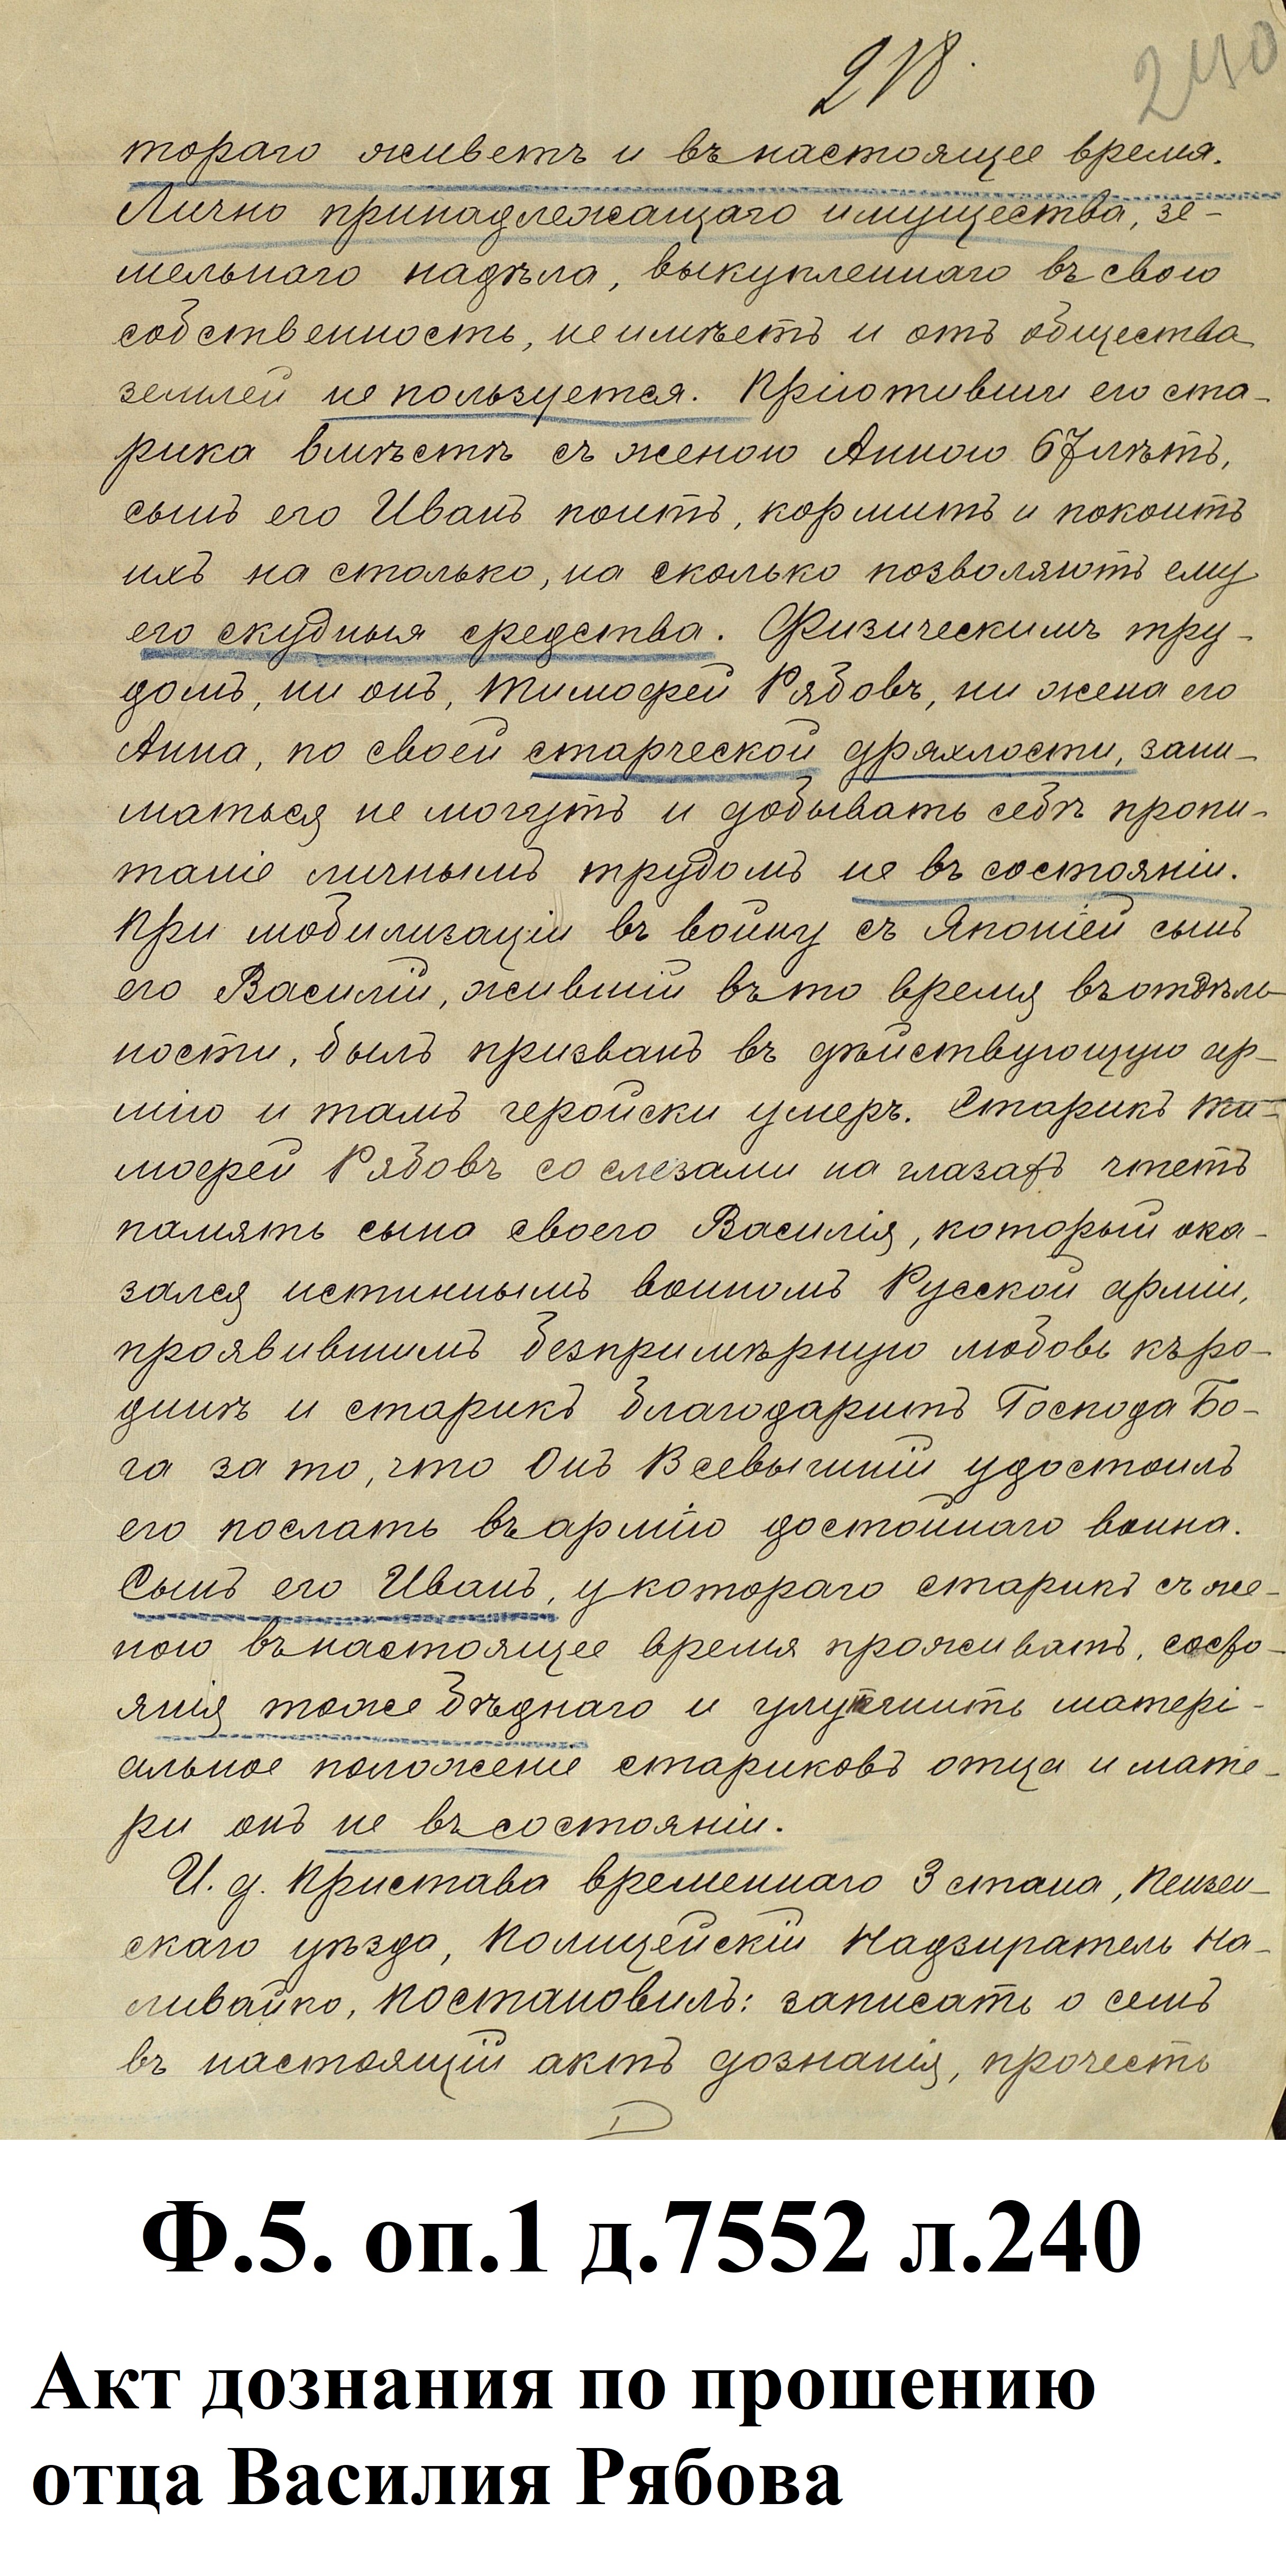 218.
240
тораго живетъ и въ настоящее время.
Лично принадлежащаго имущества, зе-
мельнаго надѣла, выкупленнаго въ свою
собственность, не имѣетъ и отъ общества
землей не пользуется. Пріютивши его ста-
рика вмѣстѣ съ женою Анною 67 лѣтъ,
сынъ его Иванъ поитъ, кормитъ и покоитъ
ихъ на столько, на сколько позволяютъ ему
его скудныя средства. Физическимъ тру-
домъ, ни онъ, Тимофей Рябовъ, ни жена его
Анна, по своей старческой дряхлости, зани-
маться не могутъ и добывать себѣ пропи-
таніе личнымъ трудомъ не въ состояніи.
При мобилизаціи въ войну съ Японіей сынъ
его Василій, жившій въ то время въ отдѣль-
ности, былъ призванъ въ дѣйствующую ар-
мію и тамъ геройски умеръ. Старикъ Ти-
мофей Рябовъ со слезами на глазахъ чтетъ
память сына своего Василія, который ока-
зался истиннымъ воиномъ Русской арміи,
проявившимъ безпримѣрную любовь къ ро-
динѣ и старикъ благодаритъ Господа Бо-
га за то, что Онъ Всевышній удостоилъ
его послать въ армію достойнаго воина.
Сынъ его Иванъ, у котораго старикъ съ же-
ною въ настоящее время проживатъ, состо-
янія тоже бѣднаго и улутчшить матері-
альное положеніе стариковъ отца и мате-
ри онъ не въ состояніи.
И. д. Пристава временнаго 3 стана, Пензен-
скаго уѣзда, Полицейскій Надзиратель На-
ливайко, постановилъ: записать о семъ
въ настоящій актъ дознанія, прочесть
Ф.5. оп.1 д.7552 л.240
Акт дознания по прошению
отца Василия Рябова